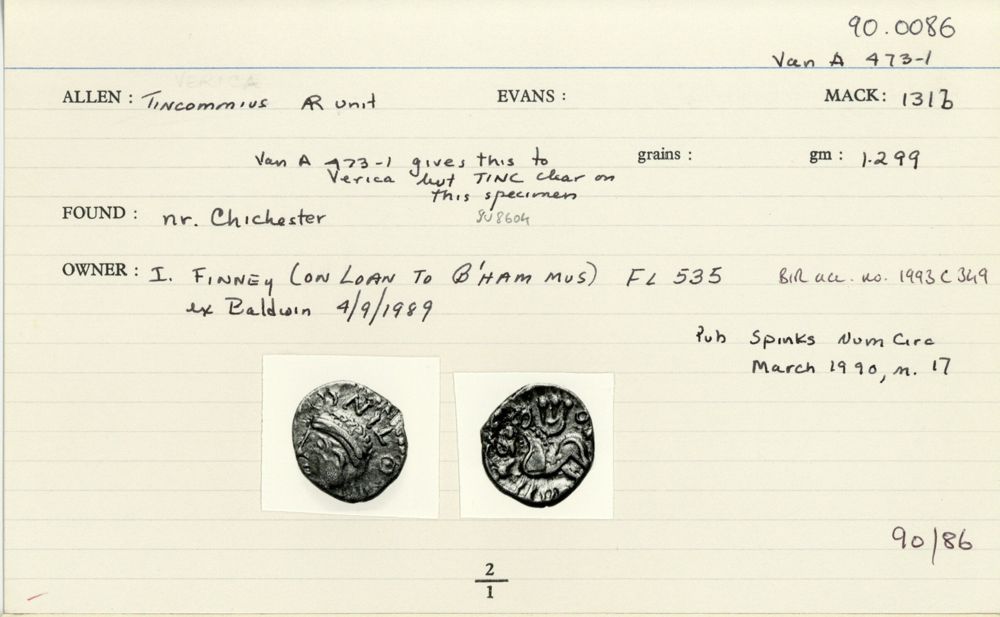 90.0086
Van A 473-1
VERICA
ALLEN : Tincommius AR unit EVANS : MACK: 131b
Van A 473-1 gives this to grains : gm : 1.299
Verica but TINC clear on
this specimen
FOUND : nr. Chichester SU8604
OWNER : I. FINNEY (ON LOAN TO B'HAM MUS) FL 535 BIR acc. no. 1993 C 349
ex Baldwin 4/9/1989
Pub Spinks Num Circ
March 1990, n. 17
90/86
2
1